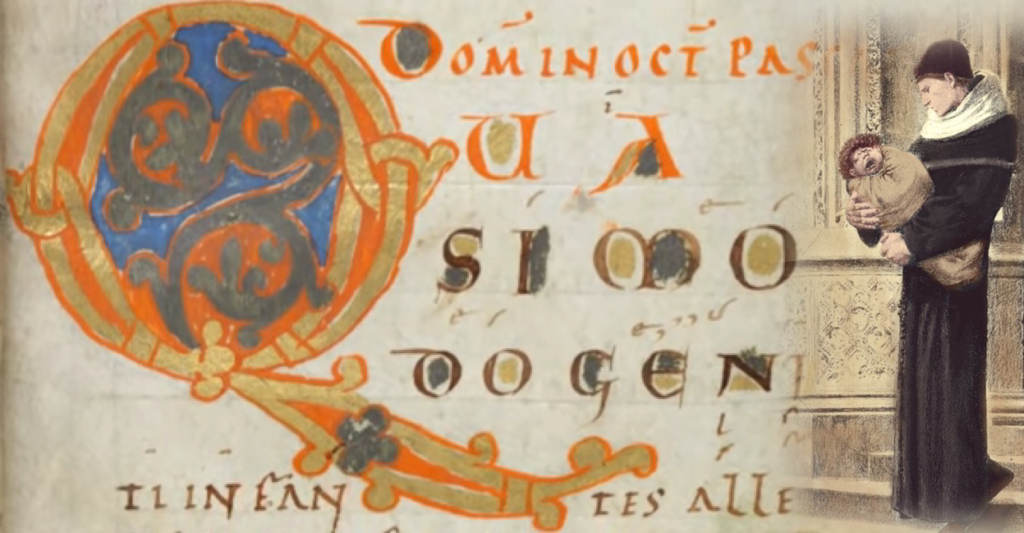 DOM̄ IN OCT̄ PAS
QUA
SIMO
DO GEN
TI INFAN TES ALLE